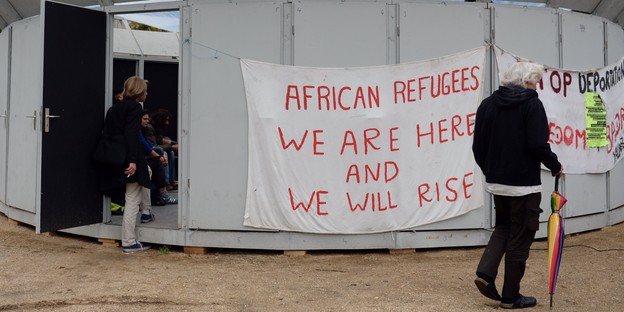 AFRICAN REFUGEES
WE ARE HERE
AND
WE WILL RISE
STOP DEPORTATION